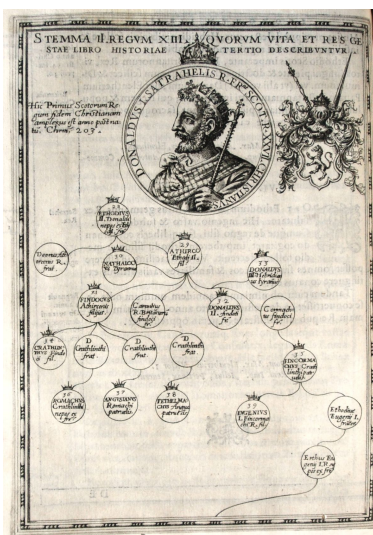 STEMMA II. REGUM XIII. QVORUM VITA ET RES GE
STAE LIBRO HISTORIAE TERTIO DESCRIBVNTUR.
DONALDVS I. SATRAHELIS R. SCOT. R. XXVII. CHRISTIANVS
Hic Primus Scotorum Re
gum fidem Christianam
amplexus est anno post na
tu. Christi 203.
28
ETHODIUS
II. Donaldi
nepos ex
29
ATHIRCO
Ethodii II.
fil.
30
NATHALOC
us Tyrannus
33
DONALDUS
III.
tyrannus
31
FINDOCUS
Athirconis
filius.
Carantius
Findoci
fr.
32
DONALDUS
II. Findoci
fr.
Findoci
fr.
34
CRATHLIN
THUS Findoci
fil.
D
Crathlinthi
frat.
D
Crathlinthi
frat.
D
Crathlinthi
frat.
35
FINCORMA
CHUS Crath
linthi patru
elis.
36
ROMACHUS
Crathlinthi
nepos ex
fr.
37
ANGUSIANUS
Romachi
patruelis.
38
FETHELMA
CHUS
39
EUGENIUS
I. Fincorma
chi R. fil.
Ethodius
Eugenii I.
frater.
Erthus Eu
genii I. R. ne
pos ex fr.